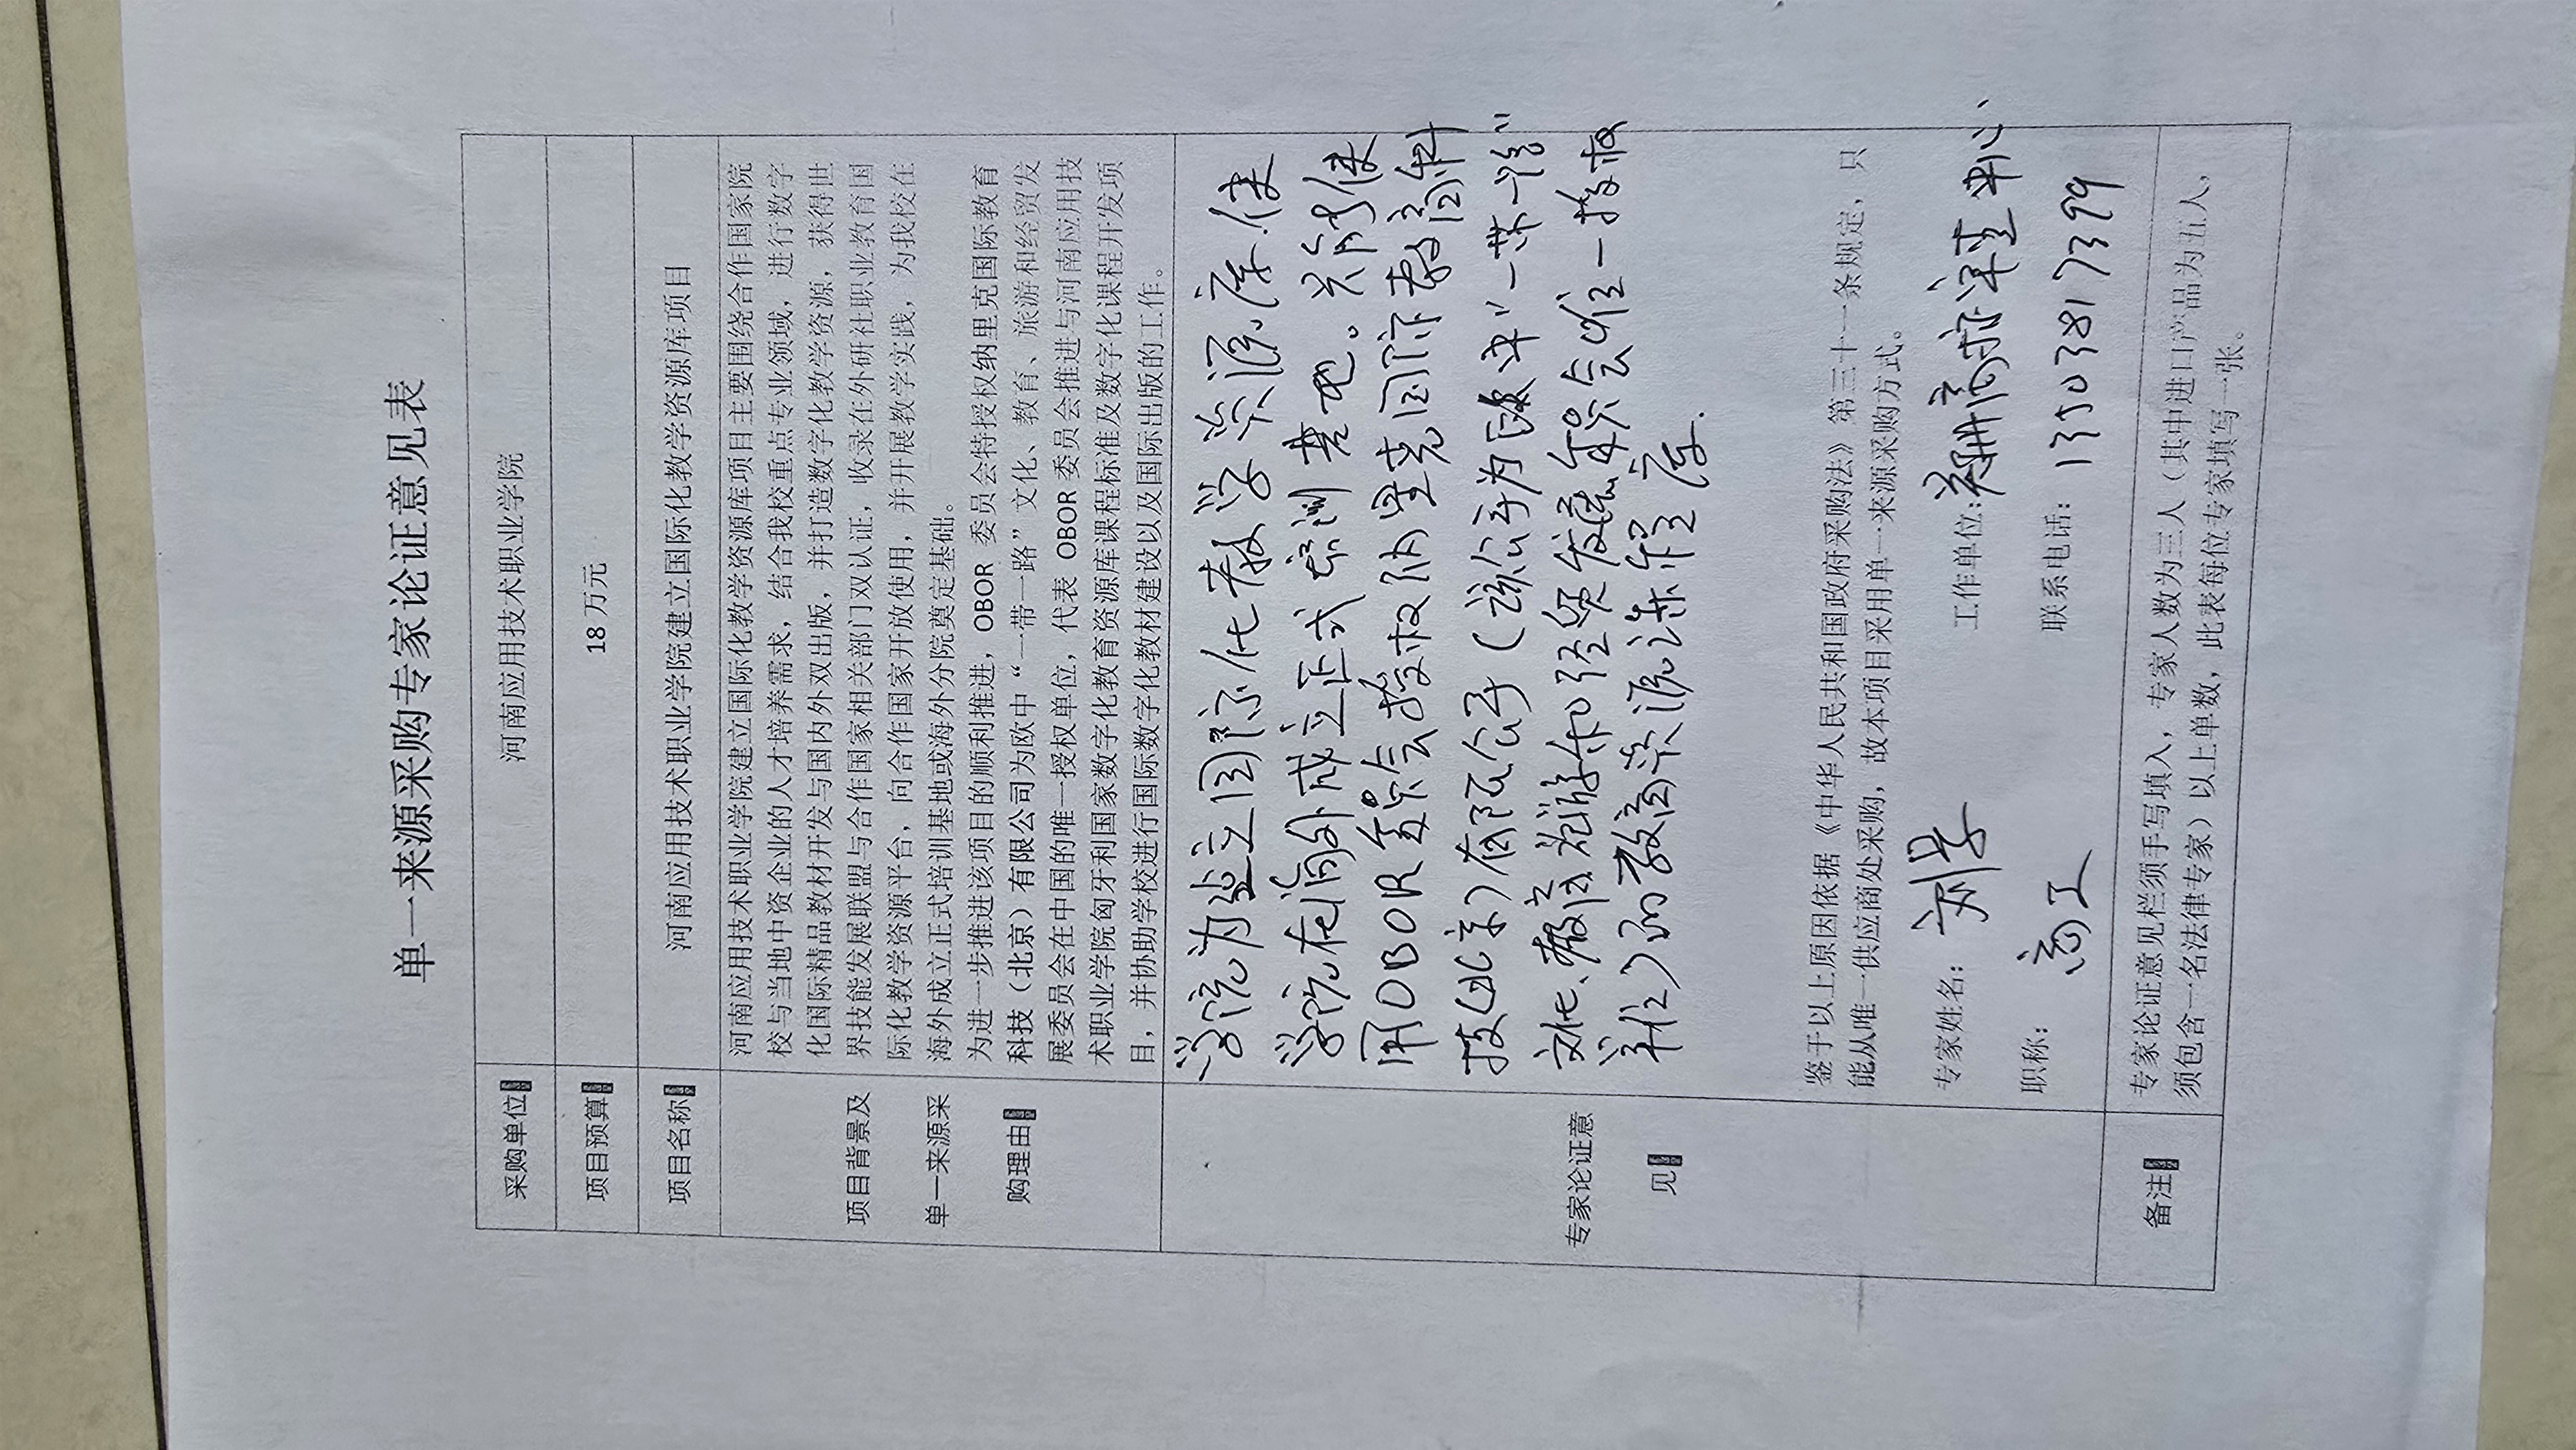 单一来源采购专家论证意见表
采购单位
河南应用技术职业学院
项目预算
18 万元
项目名称
河南应用技术职业学院建立国际化教学资源库项目
项目背景及
单一来源采
购理由
河南应用技术职业学院建立国际化教学资源库项目主要围绕合作国家院
校与当地中资企业的人才培养需求，结合我校重点专业领域，进行数字
化国际精品教材开发与国内外双出版，并打造数字化教学资源，获得世
界技能发展联盟与合作国家相关部门双认证，收录在外研社职业教育国
际化教学资源平台，向合作国家开放使用，并开展教学实践，为我校在
海外成立正式培训基地或海外分院奠定基础。
为进一步推进该项目的顺利推进，OBOR 委员会特授权纳里克国际教育
科技（北京）有限公司为欧中“一带一路”文化、教育、旅游和经贸发
展委员会在中国的唯一授权单位，代表 OBOR 委员会推进与河南应用技
术职业学院匈牙利国家数字化教育资源库课程标准及数字化课程开发项
目，并协助学校进行国际数字化教材建设以及国际出版的工作。
专家论证意
见
学院为建立国际化教学资源库.使
学院在海外成立正式培训基地。只能使
用OBOR委员会授权纳里克国际教育科
技(北京)有限公司(该公司为欧中"一带一路"
文化、教育旅游和经贸发展委员会唯一授权
单位)的教育资源课程库.
鉴于以上原因依据《中华人民共和国政府采购法》第三十一条规定，只
能从唯一供应商处采购，故本项目采用单一来源采购方式。
专家姓名：刘学
工作单位：中心
职称：高工
联系电话：13703817399
备注
专家论证意见栏须手写填入，专家人数为三人（其中进口产品为五人，
须包含一名法律专家）以上单数，此表每位专家填写一张。